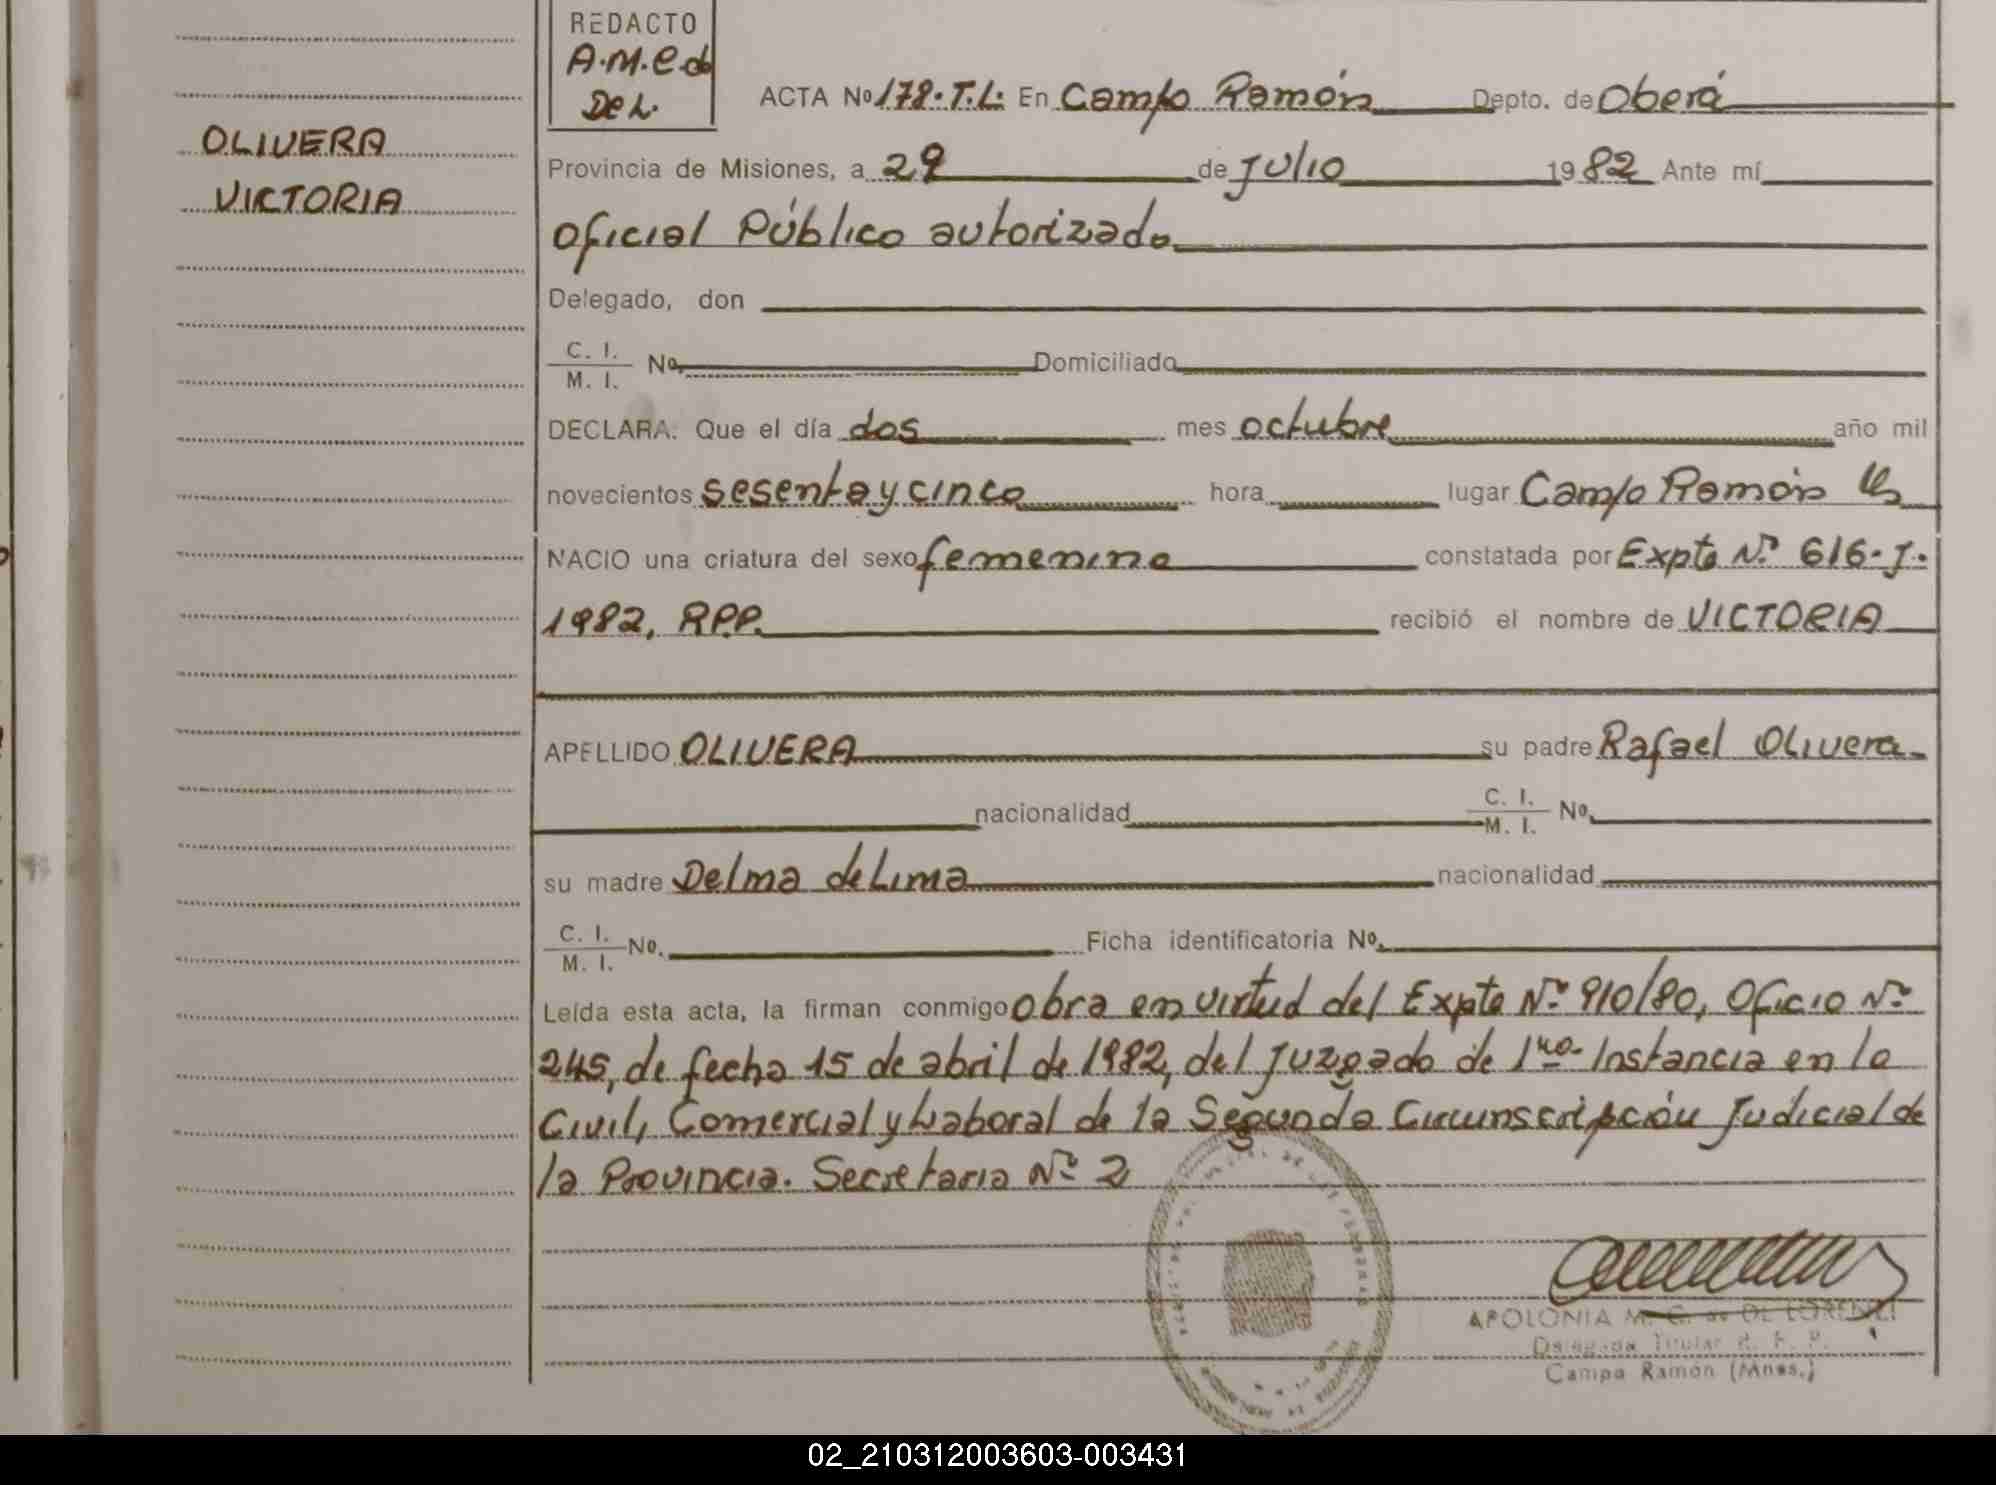 REDACTO
A.M.C.de
De L.
ACTA Nº 178.T.L. En Campo Ramón Depto. de Oberá
OLIVERA
VICTORIA
Provincia de Misiones, a 29 de Julio 1982 Ante mí
Oficial Público autorizado
Delegado, don
C. I.
M. I. No. Domiciliado
DECLARA: Que el día dos mes octubre año mil
novecientos sesenta y cinco hora lugar Campo Ramón
NACIO una criatura del sexo femenino constatada por Expte Nº 616-J-
1982, RPP. recibió el nombre de VICTORIA
APELLIDO OLIVERA su padre Rafael Olivera
nacionalidad C. I.
M. I. Nº
su madre Delma de Lima nacionalidad
C. I.
M. I. No. Ficha identificatoria Nº
Leída esta acta, la firman conmigo obra en virtud del Expte Nº 910/80, Oficio Nº
245, de fecha 15 de abril de 1982, del Juzgado de 1ra. Instancia en lo
Civil, Comercial y Laboral de la Segunda Circunscripción Judicial de
la Provincia. Secretaria Nº 2
APOLONIA M. C. de DE LORENZI
Delegada Titular R. P. P.
Campo Ramón (Mnes.)
02_210312003603-003431